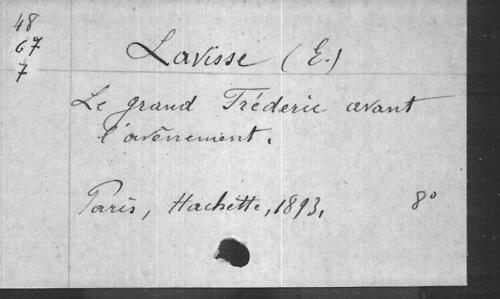 48
67
7
Lavisse (E.)
Le grand Fréderic avant
l'avènement.
Paris, Hachette, 1893. 8º